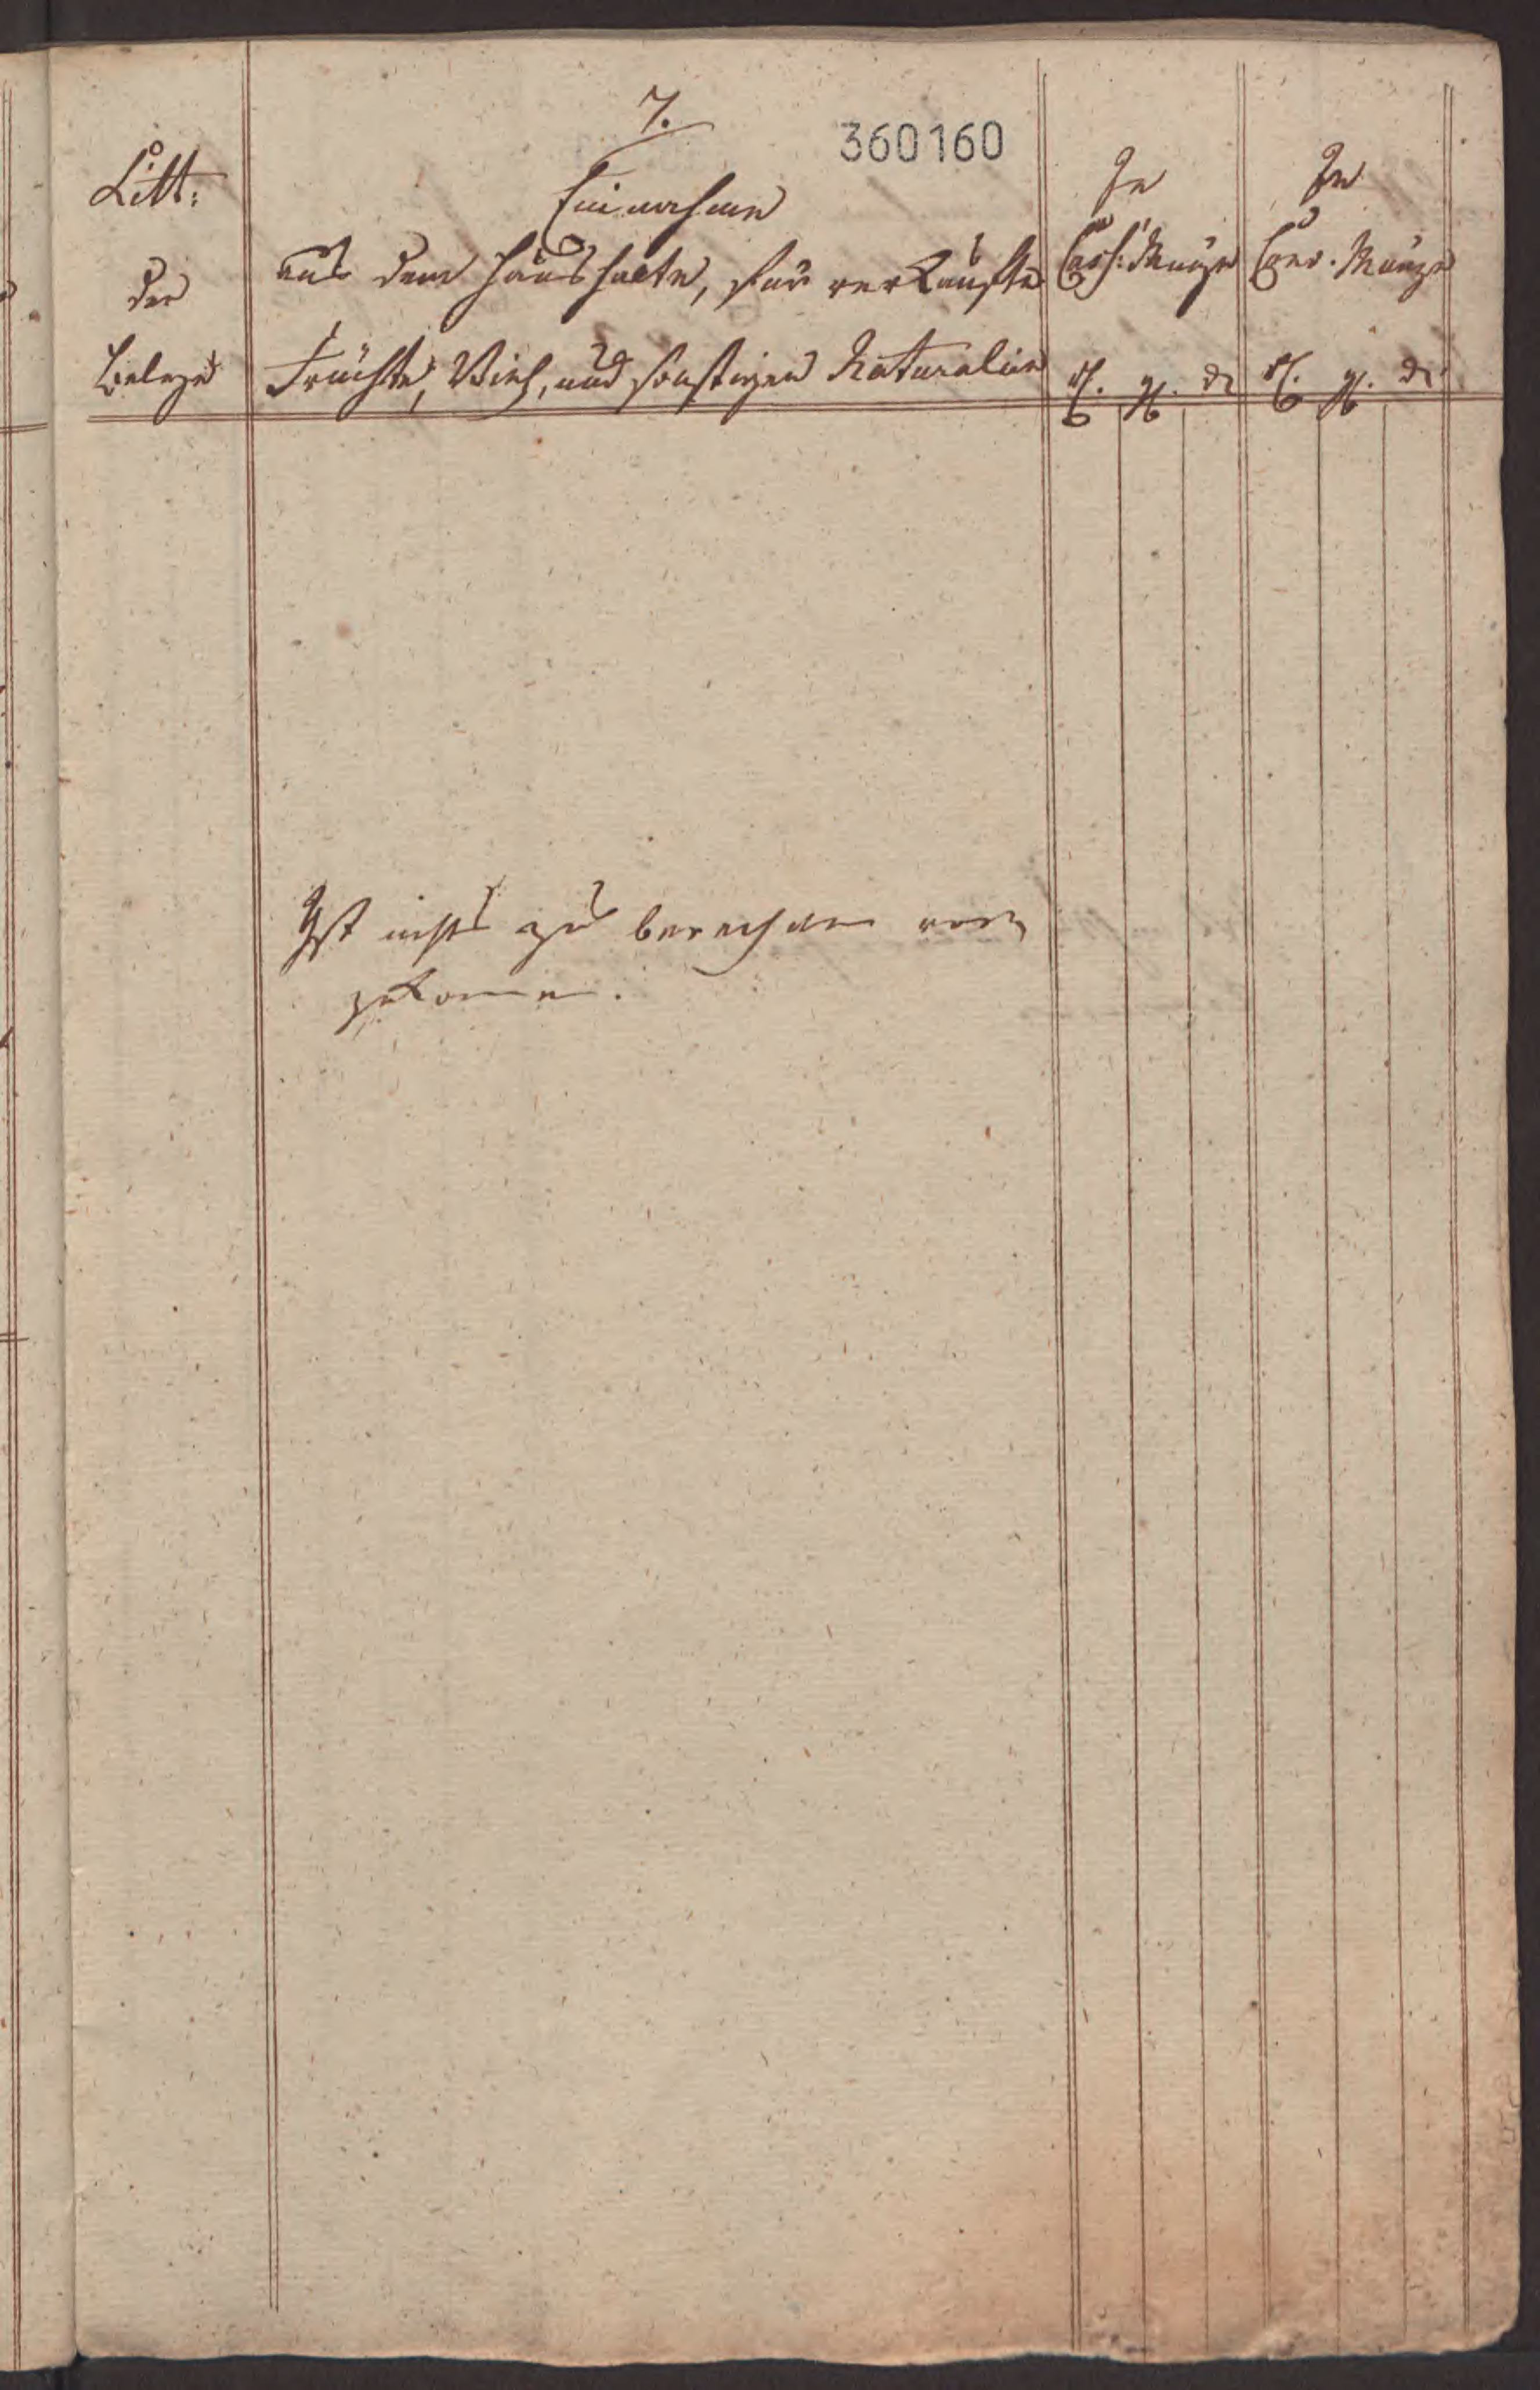 7.
360160
Litt:
der
Belege
Einnahme
aus dem Haushalte, für verkaufte
Früchte, Vieh, und sonstigen Naturalien
In
Cass: Münze
rth. gg. d
In
Conv. Münze
rth. gg. d
Ist nichts zu berechnen vor
gekommen.